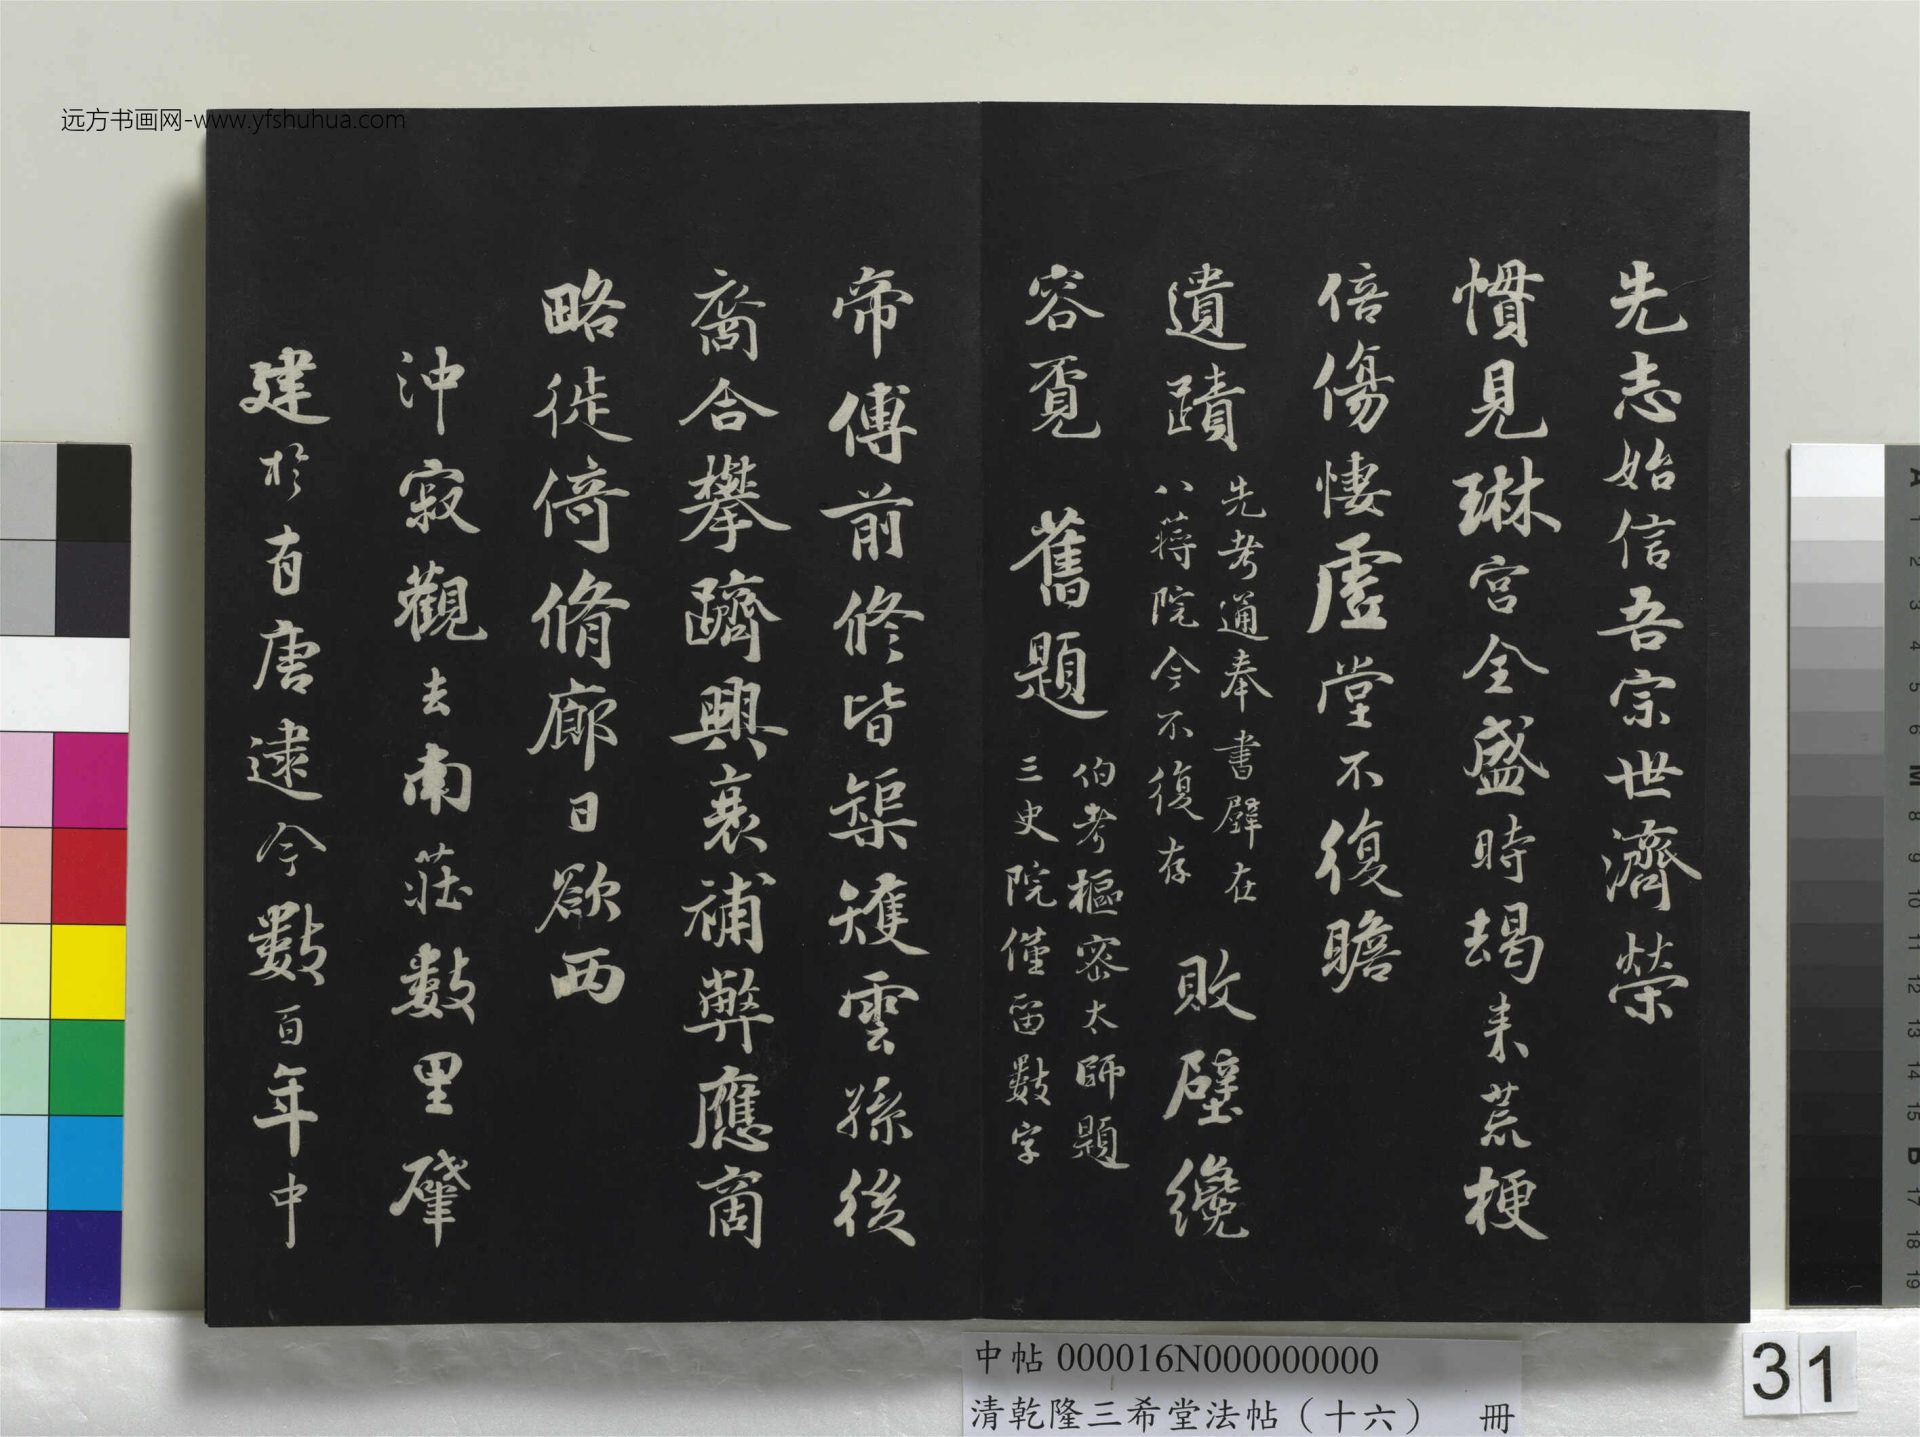 远方书画网-www.yfshuhua.com
先志始信吾宗世濟榮
慣見琳宮全盛時朅来荒梗
倍傷悽虛堂不復瞻
遺蹟先考通奉書壁在
八蔣院今不復存敗壁纔
容覓舊題伯考樞密太師題
三史院僅留數字
帝傅前修皆榘矱雲孫後
裔合攀躋興衰補弊應啇
略徙倚脩廊日欲西
沖寂觀去南莊數里肇
建於有唐逮今數百年中
中帖 000016N000000000
清乾隆三希堂法帖（十六） 冊
31